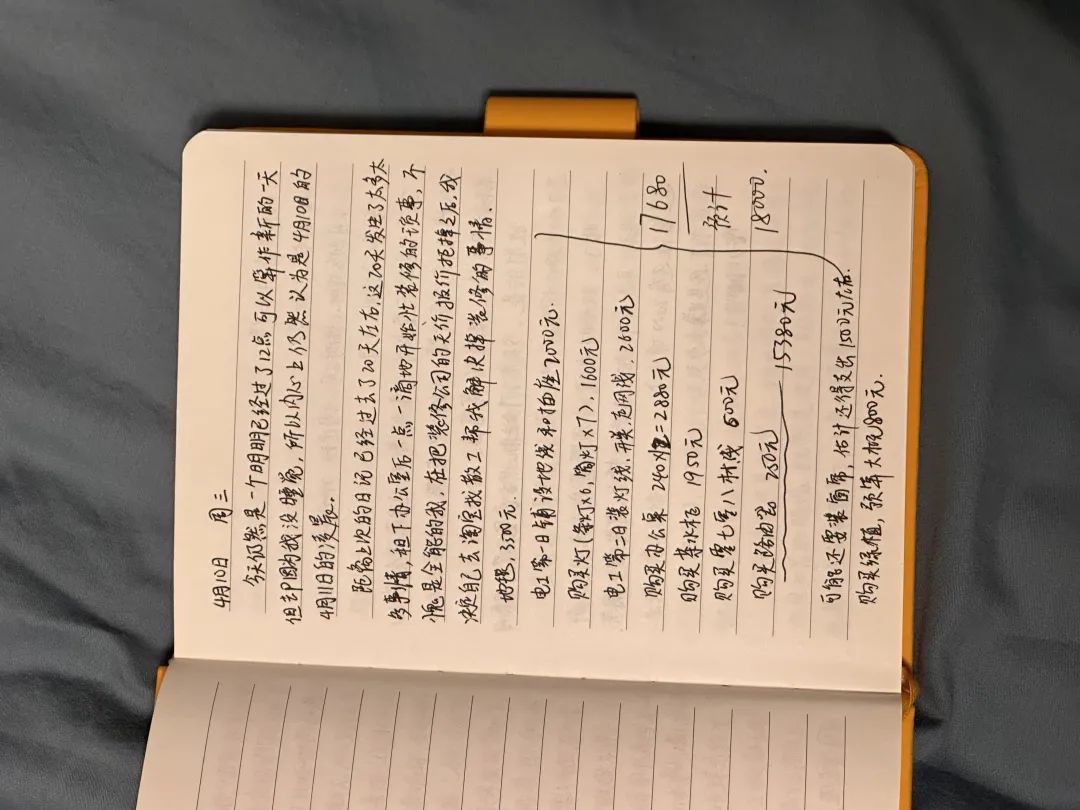 4月10日 周三
今天仍然是一个明明已经过了12点,可以算作新的一天
但去P图为我没睡觉,所以内心上仍然认为是4月10日的
4月11日的凌晨。
距离上次的日记已经过去了20天左右,这20天发生了太多太
多事情,租下办公室后一点一滴地开始忙装修的琐事,不
愧是全能的我,在把装修公司的天价报价拒掉之后,我
决定自己去淘宝找散工帮我解决掉装修的事情。
地毯,3500元.
电工第一日铺设地线和插座2000元.
购买灯(条灯×6,筒灯×7),1600元
电工第二日装灯线,开关,走网线,2600元
购买办公桌 240×12=2880元
购买茶水柜 1950元
购买零七零八材线 600元
购买 250元
15380元
可能还要装窗帘,估计还得支出1500元左右.
购买绿植,预算大概800元.
17680
预计
18000.